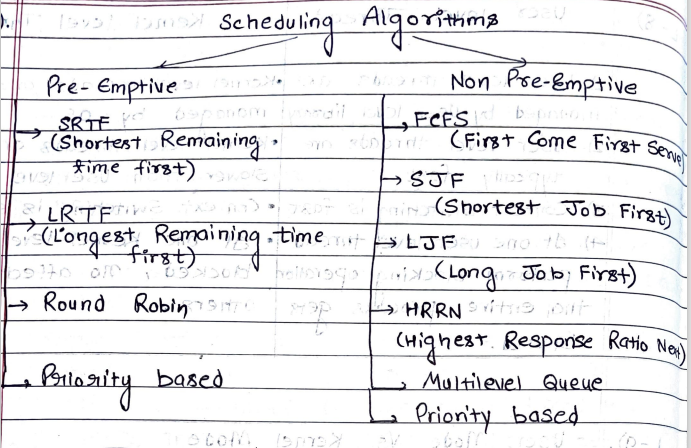 Scheduling Algorithms
Pre-Emptive
SRTF
(Shortest Remaining
time first)
LRTF
(Longest Remaining time
first)
Round Robin
Priority based
Non Pre-Emptive
FCFS
(First Come First Serve)
SJF
(Shortest Job First)
LJF
(Long Job First)
HRRN
(Highest Response Ratio Next)
Multilevel Queue
Priority based